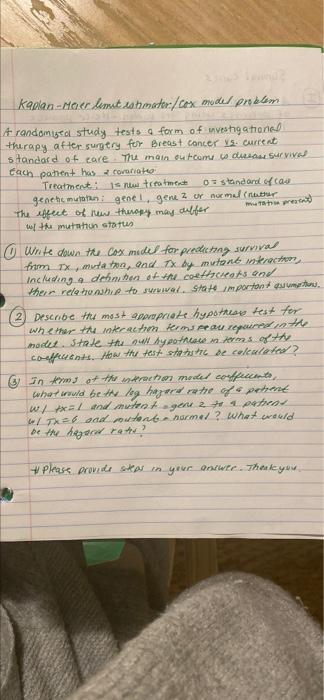 Kaplan-Meier limit estimator/Cox model problem
A randomized study tests a form of investigational
therapy after surgery for Breast cancer vs. current
standard of care. The main outcome is disease survival
Each patient has 2 covariates
Treatment: 1= new treatment 0= standard of care
genetic mutation: gene 1, gene 2 or normal (neither
mutation present)
The effect of new therapy may differ
w/ the mutation status
① Write down the Cox model for predicting survival
from Tx, mutation, and Tx by mutant interaction,
including a definition of the coefficients and
their relationship to survival. State important assumptions.
② Describe the most appropriate hypothesis test for
whether the interaction terms are required in the
model. State the null hypothesis in terms of the
coefficients. How the test statistic be calculated?
③ In terms of the interaction model coefficients,
what would be the log hazard ratio of a patient
w/ tx=1 and mutant = gene 2 to a patient
w/ Tx=0 and mutant = normal? What would
be the hazard ratio?
# Please provide steps in your answer. Thank you.